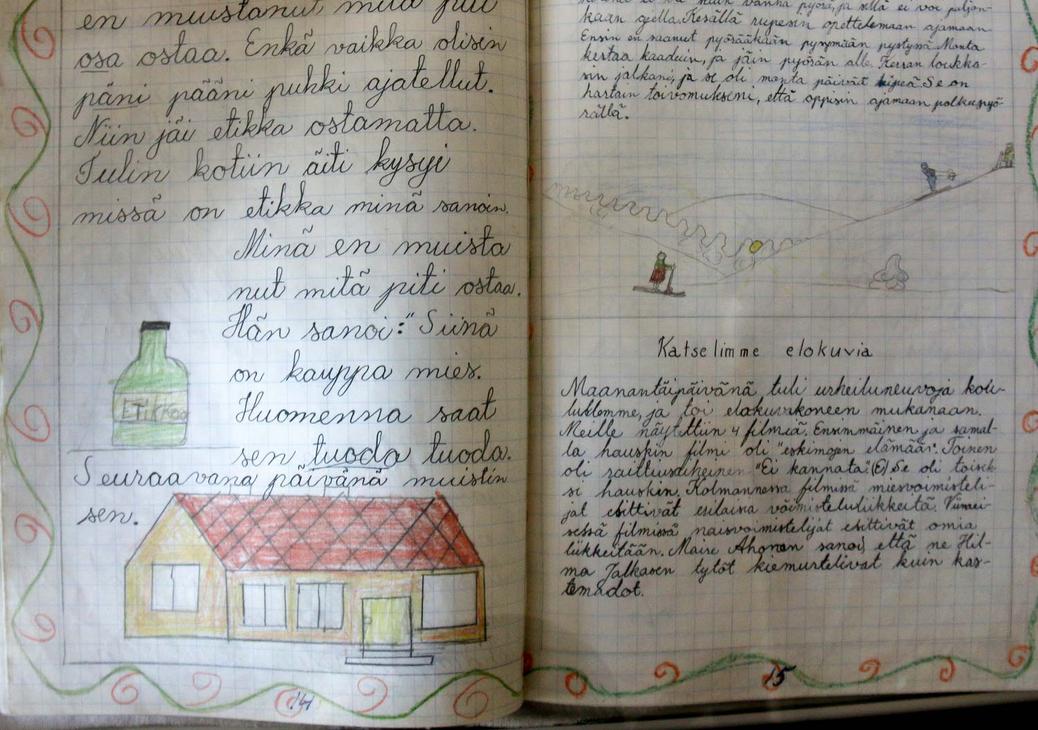 en muistanut mitä piti
osa ostaa. Enkä vaikka olisin
päni pääni puhki ajatellut.
Niin jäi etikka ostamatta.
Tulin kotiin äiti kysyi
missä on etikka minä sanoin.
Minä en muista
nut mitä piti ostaa.
Hän sanoi: "Siinä
on kauppa mies.
Huomenna saat
sen tuoda tuoda.
Seuraavana päivänä muistin
sen.
Etikkaa
14
vanha pyörä, ja sillä ei voi paljon-
kaan ajella. Kesällä rupesin opettelemaan ajamaan
Ensin en saanut pyörääkään pysymään pystyssä. Monta
kertaa kaaduin, ja jäin pyörän alle. Kerran loukka-
sin jalkani, ja se oli monta päivää kipeä. Se on
hartain toivomukseni, että oppisin ajamaan polkupyö-
rällä.
Katselimme elokuvia
Maanantaipäivänä tuli urheiluneuvoja kou-
lullemme, ja toi elokuvakoneen mukanaan.
Meille näytettiin 4 filmiä. Ensimmäinen ja samal-
la hauskin filmi oli "eskimojen elämää". Toinen
oli raittiusaiheinen "Ei kannata" Se oli toisek-
si hauskin. Kolmannessa filmissä miesvoimisteli-
jat esittivät erilaisia voimisteluliikkeitä. Viimei-
sessä filmissä naisvoimistelijat esittivät omia
liikkeitään. Maire Ahonen sanoi, että ne Hil-
ma Jalkasen tytöt kiemurtelivat kuin kas-
temadot.
15